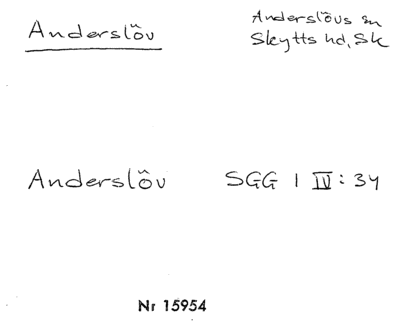 Anderslöv
Anderslövs sn
Skytts hd, Sk
Anderslöv SGG 1 IV: 34
Nr 15954